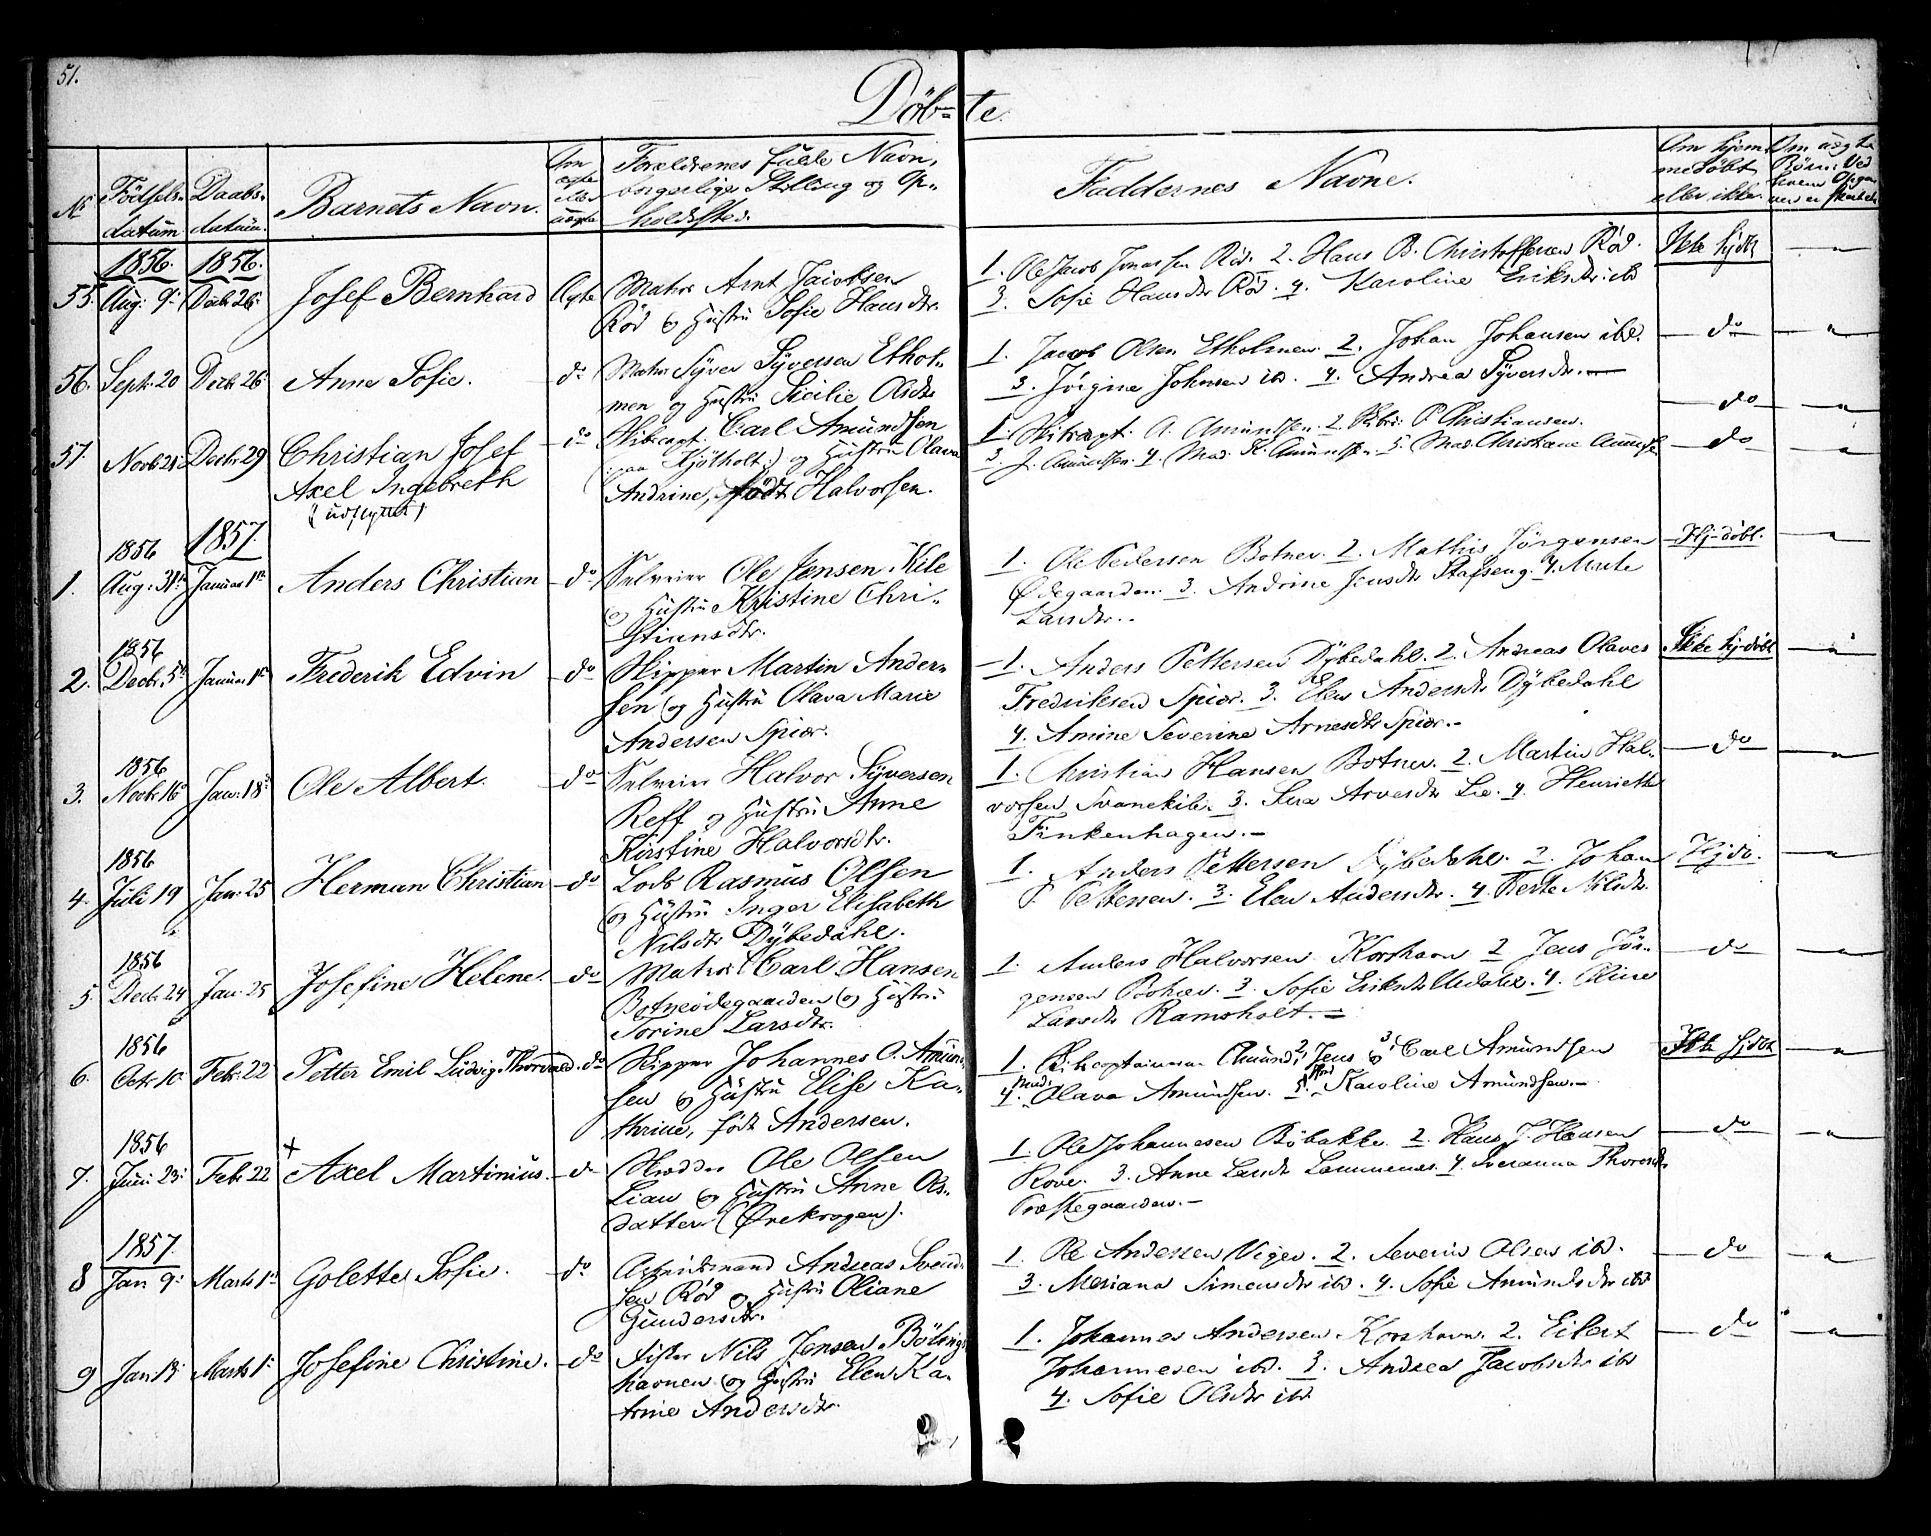 51.
Döb-te.
No
Födsels-
datum
Daabs-
datum.
Barnets Navn.
Om
ægte
eller
uægte
Forældrenes fulde Navn,
borgerlige Stilling og Op-
holdssted.
Faddernes Navne.
Om hjem-
medöbt
eller ikke.
1856.
1856.
55. Aug: 9: Decb: 26: Josef Bernhard Ægte
Matros Arnt Jacobsen
Röd og Hustru Sofie Hansdtr.
1. Ole Jacob Jonassen Röd. 2. Hans B. Christoffersen Röd.
3. Sofie Hansdtr Röd. 4. Karoline Eriksdtr: ibd
Ikke hjdbt
56. Septr. 20 Decb. 26 Anne Sofie. do
Matros Syver Syversen Ethol-
men og Hustru Sicilie Olsdtr
1. Jacob Olsen Etholmen. 2. Johan Johansen ibd.
3. Jörgine Johnsen ib. 4. Andrea Syversdtr.
do
57. Novb: 21: Decbr. 29 Christian Josef
Axel Ingebreth
(udflyttet)
do
Skibscapt. Carl Amundsen
(: paa Kjölholt:) og Hustru Olava
Andrine, födt Halvorsen.
1. Skibscapt. A. Amundsen. 2. P. Christiansen.
3. J. Amundsen. 4. Mad. K. Amundsen. 5. Mad. Christiane Amundsen
do
do
1856
1857.
1. Aug: 31te Januar 1te Anders Christian do
Selveier Ole Jensen Kile
og Hustru Kristine Chri-
stiansdtr.
1. Ole Pedersen Botner. 2. Mathis Jörgensen
Ödegaarden. 3. Andrine Jensdtr Stafseng. 4. Marte
Larsdtr.
Hj-döbt.
1856
2. Decbr. 5te Januar 1te Frederik Edvin do
Skipper Martin Ander-
sen og Hustru Olava Marie
Andersen Spiær.
1. Anders Pettersen Dybedahl. 2. Andreas Olaves
Fredriksen Spiær. 3. Elen Andersdtr Dybedahl
4. Amine Severine Arnesdtr Spiær.
Ikke hj-döbt
1856
3. Novb: 16 Jan. 18 Ole Albert. do
Selveier Halvor Syversen
Reff og Hustru Anne
Kirstine Halvorsdtr.
1. Christian Hansen Botner. 2. Martin Hal-
vorsen Svanekil. 3. Arvesdtr Lie. 4. Henriette
Finkenhagen.
do
1856
4. Juli 19 Jan. 25 Herman Christian do
Lods Rasmus Olsen
og Hustru Inger Elisabeth
Nilsdtr Dybedahl.
1. Anders Pettersen Dybedahl. 2. Johan
P. Pettersen. 3. Elen Andersdtr. 4. Berte Nilsdtr.
Hjdö.
1856
5. Decbr. 24 Jan. 25 Josefine Helene. do
Matros Carl Hansen
Botneödegaarden og Hustru
Torine Larsdtr.
1. Anders Halvorsen Korshavn 2. Jens Jör-
gensen Botner. 3. Sofie Eriksdtr Uedalen. 4. Oline
Larsdtr Ramsholt.
do
1856
6. Octr. 10 Febr. 22 Petter Emil Ludvig Thorvald. do
Skipper Johannes O. Amund-
sen og Hustru Elise Ka-
thrine, födt Andersen.
1. Skibscaptainerne Amund, 2, Jens og 3, Carl Amundsen
4. Mad: Olava Amundsen. 5. Mad Karoline Amundsen.
Ikke hjdbt
1856
7. Juni 23: Febr. 22 Axel Martinius. do
Skrædder Ole Olsen
Lian og Hustru Anne Ols-
datter (Örekrogen).
1. Ole Johannesen Röbakke. 2. Hans J. Hansen
Rove. 3. Anne Larsdtr Lammenes. 4. Thoresdtr
Præstegaarden.
do
1857.
8 Jan 9: Marts 1te Golette Sofie. do
Arbeidsmand Andreas Svend-
sen Röd og Hustru Oliane
Gundersdtr.
1. Ole Andersen Viger. 2. Severin Olsen ibd.
3. Mariana Simensdtr ibd. 4. Sofie Amundsdtr ibd
do
9 Jan 13: Marts 1: Josefine Christine. do
Fisker Nils Jensen Bölings-
havnen og Hustru Elen Ka-
trine Andersdtr.
1. Johannes Andersen Korshavn. 2. Eilert
Johannesen ibd. 3. Andrea Jacobsdtr ibd
4. Sofie Olsdtr ibd.
do